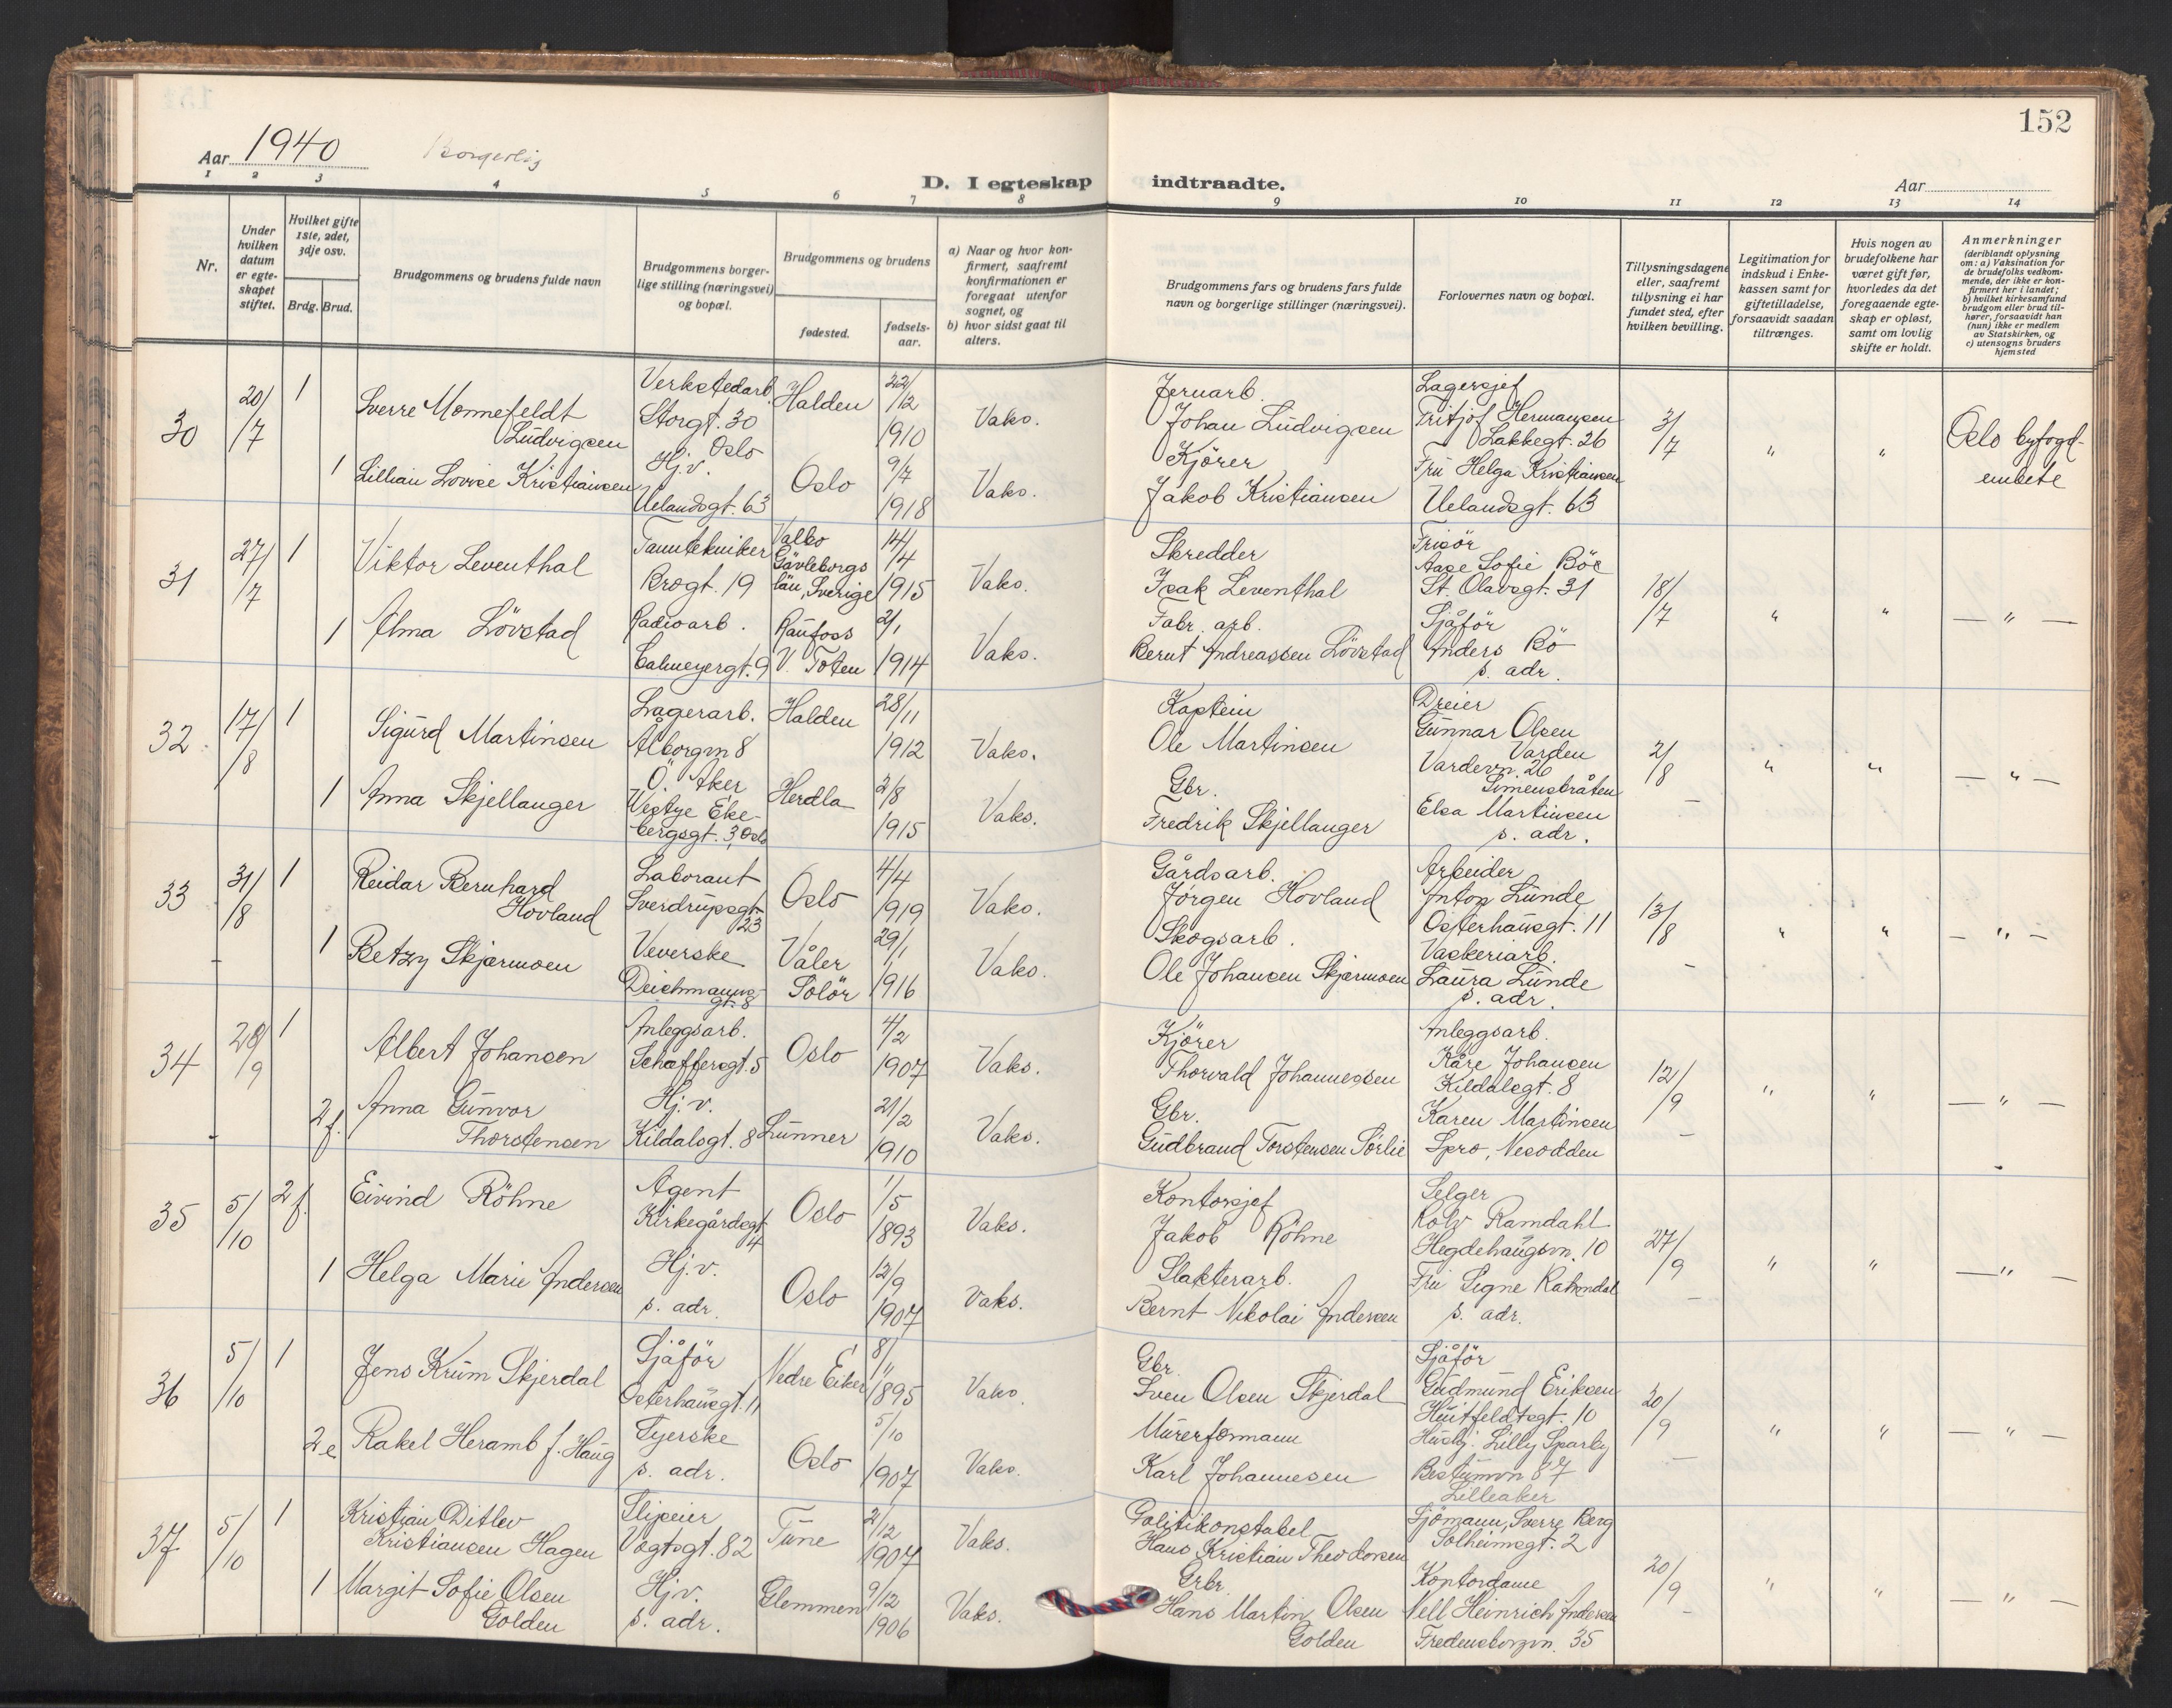 152
Aar 1940 Borgerlig
D. I egteskap indtraadte.
Aar
1 2 3 4 5 6 7 8 9 10 11 12 13 14
Nr.
Under hvilken datum er egte- skapet stiftet.
Hvilket gifte 1ste, 2det, 3dje osv.
Brdg. Brud.
Brudgommens og brudens fulde navn
Brudgommens borger- lige stilling (næringsvei) og bopæl.
Brudgommens og brudens
fødested.
fødsels- aar.
a) Naar og hvor kon- firmert, saafremt konfirmationen er foregaat utenfor sognet, og
b) hvor sidst gaat til alters.
Brudgommens fars og brudens fars fulde navn og borgerlige stillinger (næringsvei).
Forlovernes navn og bopæl.
Tillysningsdagene eller, saafremt tillysning ei har fundet sted, efter hvilken bevilling.
Legitimation for indskud i Enke- kassen samt for giftetilladelse, forsaavidt saadan tiltrænges.
Hvis nogen av brudefolkene har været gift før, hvorledes da det foregaaende egte- skap er opløst, samt om lovlig skifte er holdt.
Anmerkninger (deriblandt oplysning om: a) Vaksination for de brudefolks vedkom- mende, der ikke er kon- firmert her i landet; b) hvilket kirkesamfund brudgom eller brud til- hører, forsaavidt han (hun) ikke er medlem av Statskirken, og c) utensogns bruders hjemsted
30 20/7 1 Sverre Monnefeldt Ludvigsen Verkstedarb. Storgt. 30 Oslo Halden 22/12 1910 Vaks. Jernarb. Johan Ludvigsen Lagersjef Fritjof Hermansen Lakkegt. 26 3/7 " " Oslo byfogd- embete
1 Lillian Lovise Kristiansen Hj.v. Uelandsgt. 63 Oslo 9/7 1918 Vaks. Kjörer Jakob Kristiansen Fru Helga Kristiansen Uelandsgt. 63
31 27/7 1 Viktor Leventhal Tanntekniker Brogt. 19 Valbo Gävleborgs län, Sverige 14/4 1915 Vaks. Skredder Isak Leventhal Frisör Aase Sofie Böe St. Olavsgt. 31 18/7 " " — " —
1 Alma Lövstad Radioarb. Calmeyergt. 9 Raufoss V. Toten 2/1 1914 Vaks. Fabr. arb. Bernt Andreassen Lövstad Sjåför Anders Bö s. adr.
32 17/8 1 Sigurd Martinsen Lagerarb. Ålborgvn 8 Ö. Aker Halden 28/11 1912 Vaks. Kaptein Ole Martinsen Dreier Gunnar Olsen Varden Vardevn. 26 Simensbråten 2/8 " " — " —
1 Anna Skjellanger Vestye Eke- bergsgt. 3, Oslo Herdla 2/8 1915 Vaks. Gbr. Fredrik Skjellanger Elsa Martinsen s. adr.
33 31/8 1 Reidar Bernhard Hovland Laborant Sverdrupsgt. 23 Oslo 4/4 1919 Vaks. Gårdsarb. Jørgen Hovland Arbeider Anton Lunde Osterhausgt. 11 13/8 " " — " —
1 Betzy Skjærmoen Veverske Deichmanns- gt. 8 Våler Solör 29/1 1916 Vaks. Skogsarb. Ole Johansen Skjærmoen Vaskeriarb. Laura Lunde s. adr.
34 28/9 1 Albert Johansen Anleggsarb. Schäffersgt. 5 Oslo 4/2 1907 Vaks. Kjörer Thorvald Johannessen Anleggsarb. Kåre Johansen Kildalsgt. 8 12/9 " " — " —
2 f. Anna Gunvor Thorstensen Hj.v. Kildalsgt. 8 Lunner 21/2 1910 Vaks. Gbr. Gudbrand Torstensen Sörlie Karen Martinsen Spro, Nesodden
35 5/10 2 f. Eivind Röhne Agent Kirkegårdsgt. 4 Oslo 1/5 1893 Vaks. Kontorsjef Jakob Röhne Selger Rolv Ramdahl Hegdehaugsvn. 10 27/9 " " — " —
1 Helga Marie Andersen Hj.v. s. adr. Oslo 12/9 1907 Vaks. Slakterarb. Bernt Nikolai Andersen Fru Signe Ramndal s. adr.
36 5/10 1 Jens Krum Skjerdal Sjåför Osterhausgt. 11 Nedre Eiker 8/11 1895 Vaks. Gbr. Sven Olsen Skjerdal Sjåför Gudmund Eriksen Huitfeldtsgt. 10 20/9 " " — " —
2 e Rakel Heramb f. Haug Syerske s. adr. Oslo 5/10 1907 Vaks. Murerformann Karl Johannesen Husbj. Lilly Sparby Bestumvn 87 Lilleaker
37 5/10 1 Kristian Ditlev Kristiansen Hagen Slipeier Vogtsgt. 82 Tune 2/12 1907 Vaks. Politikonstabel Hans Kristian Theodorsen Sjömann, Sverre Berg Solheimsgt. 2 20/9 " " — " —
1 Margit Sofie Olsen Golden Hj.v. s. adr. Glemmen 9/12 1906 Vaks. Grbr. Hans Martin Olsen Golden Kontordame Nell Heinrich Andersen Fredensborgvn. 35